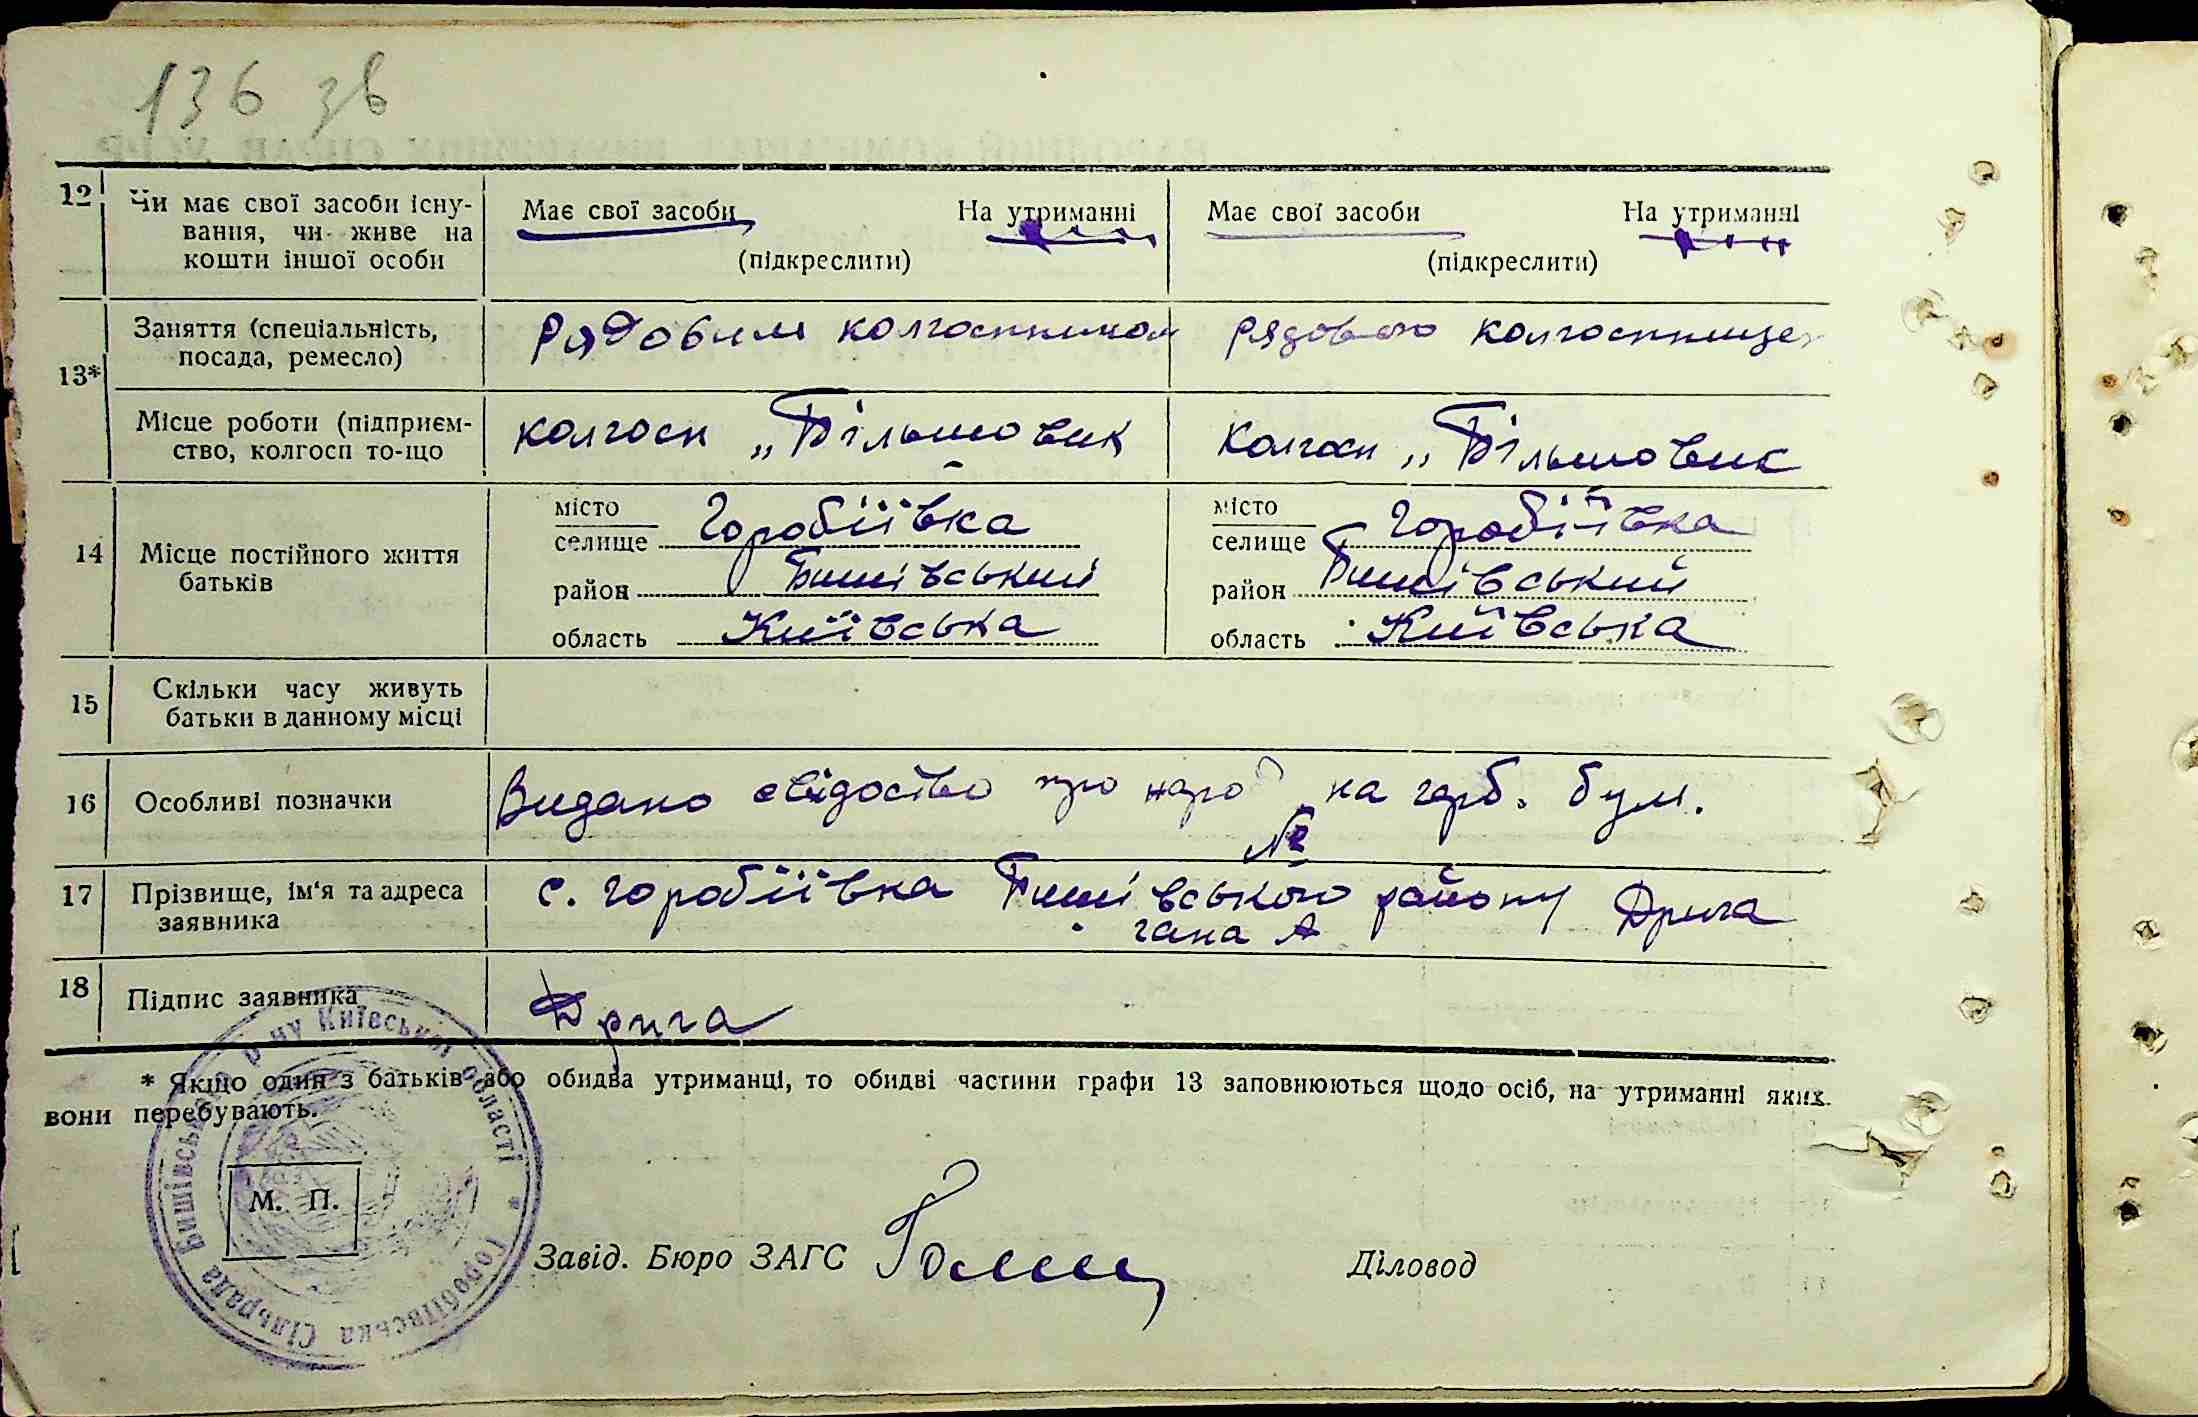 136 зв
12 Чи має свої засоби існу- Має свої засоби На утриманні Має свої засоби На утриманні
вання, чи живе на
кошти іншої особи (підкреслити) (підкреслити)
13* Заняття (спеціальність, Рядовим колгоспником рядовою колгоспницею
посада, ремесло)
Місце роботи (підприєм- колгосп „Більшовик колгосп „Більшовик
ство, колгосп то-що
14 Місце постійного життя
батьків
місто
селище Горобіївка
район Бишівський
область Київська
місто
селище Горобіївка
район Бишівський
область Київська
15 Скільки часу живуть
батьки в данному місці
16 Особливі позначки Видано свідоство про наро на герб. бум.
№
17 Прізвище, ім'я та адреса с. Горобіївка Бишівського району Дрига
заявника гана А
18 Підпис заявника Дрига
* Якщо один з батьків або обидва утриманці, то обидві частини графи 13 заповнюються щодо осіб, на утриманні яких
вони перебувають.
Горобіївська Сільрада Бишівського р-ну Київської області *
М. П.
Завід. Бюро ЗАГС Діловод